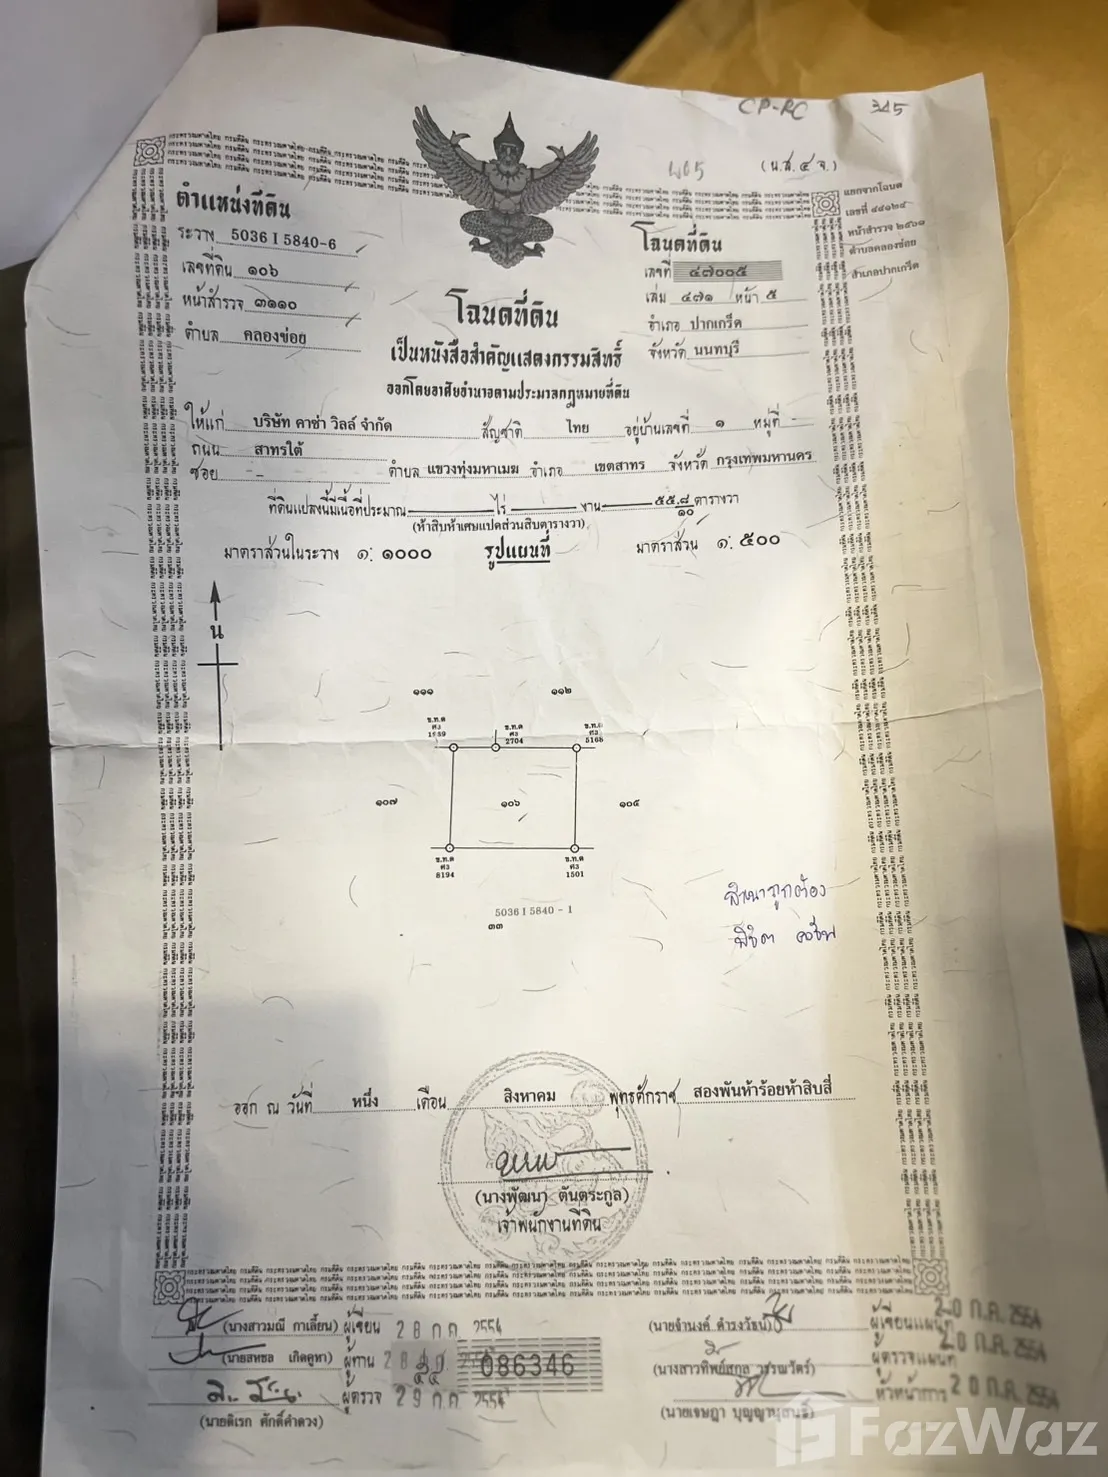 CP-RC 345
(น.ส.๔ จ.)
แยกจากโฉนด
เลขที่ ๔๔๑๒๔
หน้าสำรวจ ๒๕๖๘
ตำบลคลองข่อย
อำเภอปากเกร็ด
ตำแหน่งที่ดิน
ระวาง 5036 I 5840-6
เลขที่ดิน ๑๐๖
หน้าสำรวจ ๓๑๑๐
ตำบล คลองข่อย
โฉนดที่ดิน
เลขที่ ๔๗๐๐๕
เล่ม ๔๗๑ หน้า ๕
อำเภอ ปากเกร็ด
จังหวัด นนทบุรี
โฉนดที่ดิน
เป็นหนังสือสำคัญแสดงกรรมสิทธิ์
ออกโดยอาศัยอำนาจตามประมวลกฎหมายที่ดิน
ให้แก่ บริษัท คาซ่า วิลล์ จำกัด สัญชาติ ไทย อยู่บ้านเลขที่ ๑ หมู่ที่ -
ถนน สาทรใต้
ซอย - - ตำบล แขวงทุ่งมหาเมฆ อำเภอ เขตสาทร จังหวัด กรุงเทพมหานคร
ที่ดินแปลงนี้มีเนื้อที่ประมาณ ไร่ งาน ๕๕ ๘/๑๐ ตารางวา
(ห้าสิบห้าเศษแปดส่วนสิบตารางวา)
มาตราส่วนในระวาง ๑: ๑๐๐๐ รูปแผนที่ มาตราส่วน ๑: ๕๐๐
น
๑๑๑ ๑๑๒
ข.ท.ด ข.ท.ด
ศ3 ศ3 ศ3
2704 5168
๑๐๗ ๑๐๖ ๑๐๕
ข.ท.ด ข.ท.ด
ศ3 ศ3
8194 1501
5036 I 5840 - 1
๓๓
สำเนาถูกต้อง
ออก ณ วันที่ หนึ่ง เดือน สิงหาคม พุทธศักราช สองพันห้าร้อยห้าสิบสี่
(นางพัฒนา ตันตระกูล)
เจ้าพนักงานที่ดิน
(นางสาวมณี กาเลี้ยน) ผู้เขียน 28 ก.ค. 2554
(นายสหชล เกิดคูหา) ผู้ทาน 28
086346
ผู้ตรวจ 29 ก.ค. 2554
(นายดิเรก ศักดิ์คำดวง)
(นายจำนงค์ ดำรงวัธน์) ผู้เขียนแผนที่ 20 ก.ค. 2554
ผู้ตรวจแผนที่ 20 ก.ค. 2554
หัวหน้าการ 20 ก.ค. 2554
FazWaz